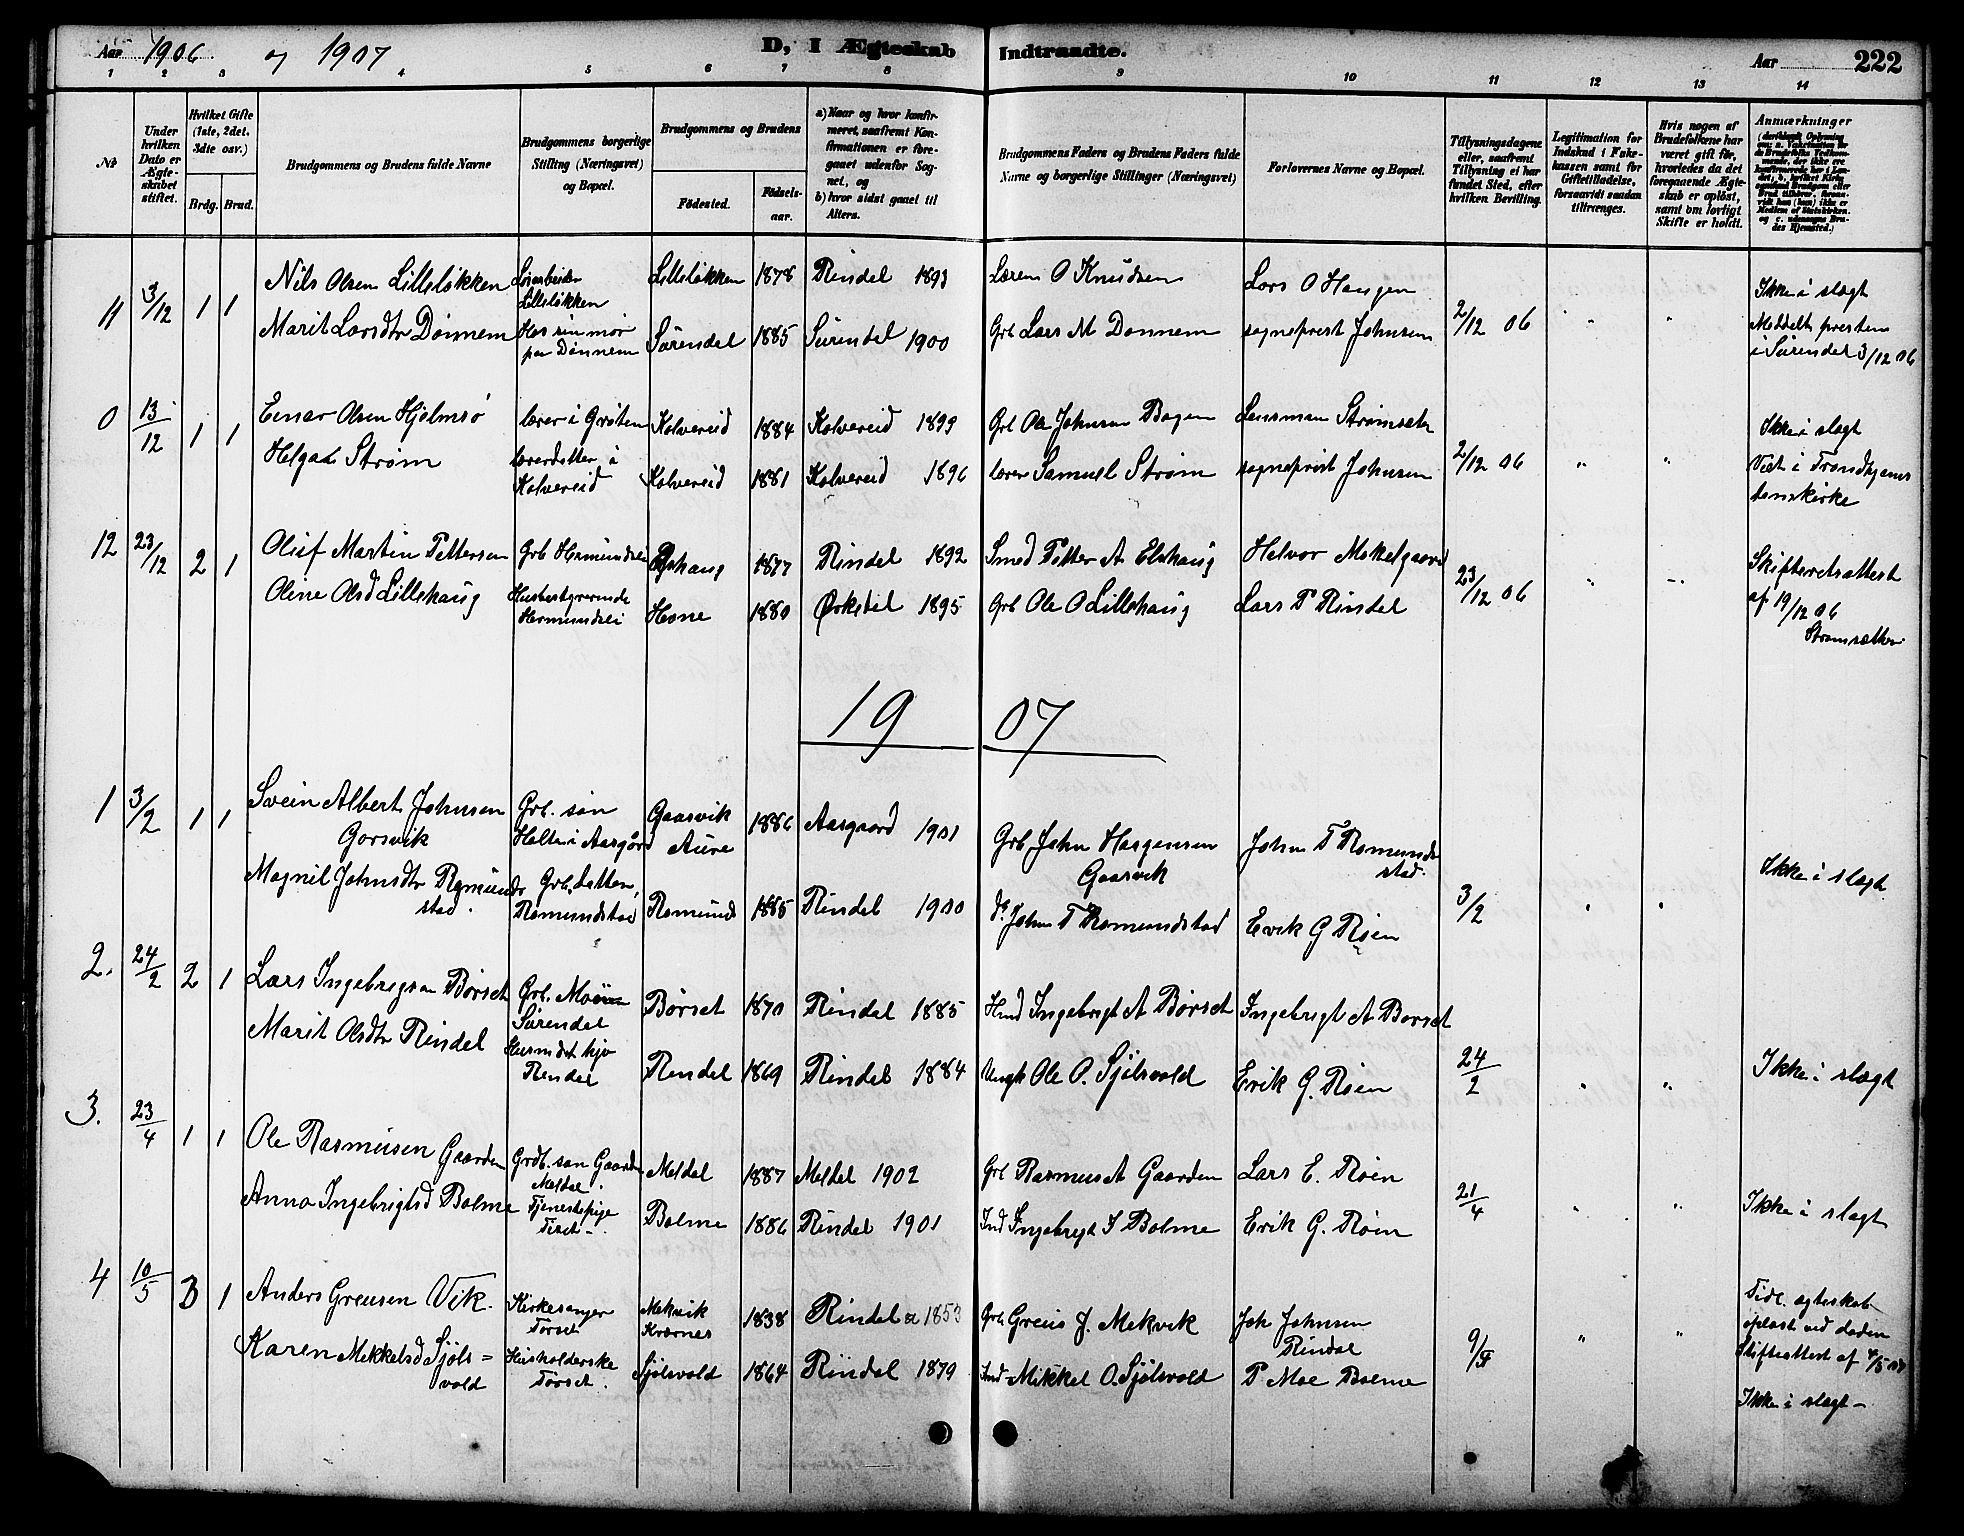 Aar 1906 og 1907
D, I Ægteskab Indtraadte.
Aar 222
1 2 3 4 5 6 7 8 9 10 11 12 13 14
No
Under hvilken Dato er Ægteskabet stiftet.
Hvilket Gifte (1ste, 2det, 3die osv.)
Brdg. Brud.
Brudgommens og Brudens fulde Navne
Brudgommens borgerlige Stilling (Næringsvei) og Bopæl.
Brudgommens og Brudens
Fødested.
Fødsels-aar.
a) Naar og hvor konfirmeret, saafremt Konfirmationen er foregaaet udenfor Sognet, og
b) hvor sidst gaaet til Alters.
Brudgommens Faders og Brudens Faders fulde Navne og borgerlige Stillinger (Næringsvei)
Forlovernes Navne og Bopæl.
Tillysningsdagene eller, saafremt Tillysning ei har fundet Sted, efter hvilken Bevilling.
Legitimation for Indskud i Enkekassen samt for Giftetilladelse, forsaavidt saadan tiltrænges.
Hvis nogen af Brudefolkene har været gift før, hvorledes da det foregaaende Ægteskab er opløst, samt om lovligt Skifte er holdt.
Anmærkninger
11 3/12 1 1 Nils Olsen Lilleløkken Lilleløkken Lilleløkken 1878 Rindal 1893 O Knudsen Lars O Haugen Ikke i slægt
Marit Larsdtr Dönnem Hos sin mor paa Dønnem Surendal 1885 Surendal 1900 Grb Lars M Dönnem sogneprest Johnsen 2/12 06 " " Meddelt presten
i Surendal 3/12 06
0 13/12 1 1 Einar Olsen Hjelmsø lærer i Kolvereid 1884 Kolvereid 1899 Grb Ole Johnsen Lensman Strømsæter Ikke i slægt
Strøm lærerdatter i Kolvereid Kolvereid 1881 Kolvereid 1896 lærer Samuel Strøm sogneprest Johnsen 2/12 06 " " Viet i Trondhjem
12 23/12 2 1 Oluf Martin Pettersen Grb Hermundslei 1877 Rindal 1892 Smed Petter A Elshaug 23/12 06 " Skifteretsattest
Oline Olsd Lillehaug Hermundslei Hone 1880 Ørkedal 1895 Grb Ole O Lillehaug Lars P Rindal af 19/12 06
Strømsæther
1907
1 3/2 1 1 Svein Albert Johnsen Gorsvik Grb. søn Gaarsvik Aure 1886 Aasgaard 1901 Grb John Gaarsvik John T Romundstad
Magnil Johnsdtr Romundstad Grb. datter, Romundstad Romunds 1885 Rindal 1900 do John T Romundstad Erik G Røen 3/2 " " Ikke i slægt
2. 24/2 2 1 Lars Ingebrigtsen Børset Grb. Surendal Børset 1870 Rindal 1885 Ingebrigt A Børset Ingebrigt A Børset
Marit Olsdtr Rindal Rindal Rindal 1869 Rindal 1884 Ungk Ole O. Sjølsvold Erik G. Røen 24/2 " " Ikke i slægt
3. 23/4 1 1 Ole Rasmusen Gaarden Grdb. søn Gaarden Meldal. Meldal 1887 Meldal 1902 Grb Rasmus A Gaarden Lars E. Røen
Anna Ingebrigtsd Bolme Tjenestepige Bolme 1886 Rindal 1901 Ind Ingebrigt I Bolme Erik G. Røen 21/4 " " Ikke i slægt
4 10/5 3 1 Anders Greusen Vik. Kirkesanger Tørset Mekvik 1838 Rindal 1853 Grb Greus J. Mekvik Joh Johnsen Rindal Tidl. ægteskab opløst ved døden
Skifteattest af 4/5 07
Karen Mekkelsd Sjølsvold Husholderske Tørset. Sjølsvold 1864 Rindal 1879 Ind Mikkel O. Sjølsvold P Moe Bolme " " Ikke i slægt